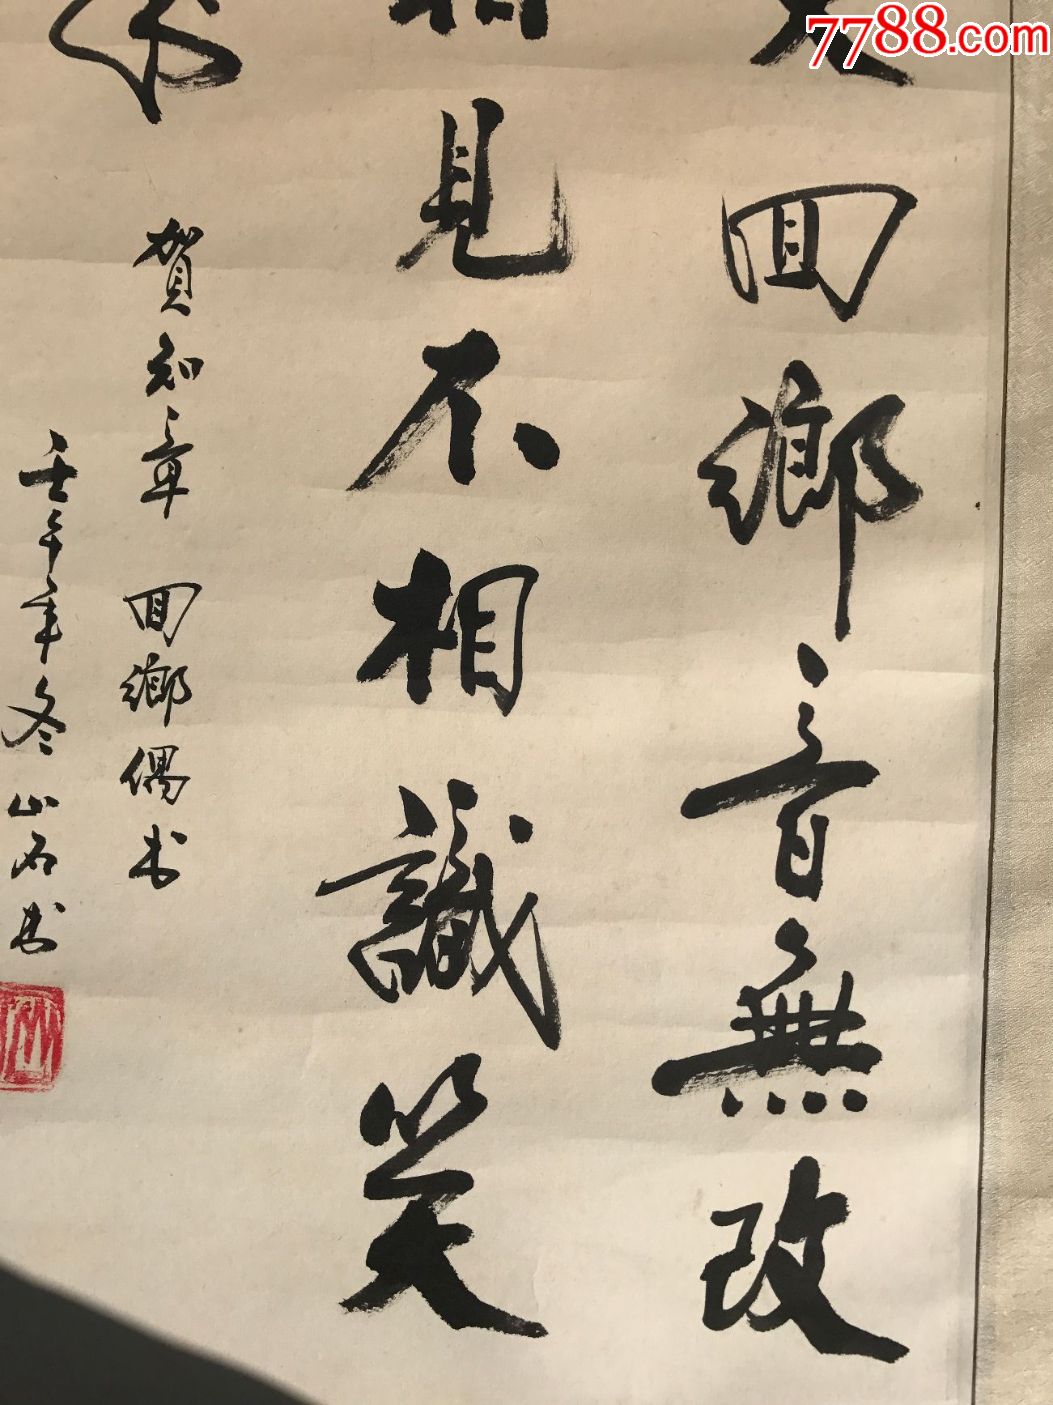 7788.com
回鄉音無改
見不相識笑
賀知章 回鄉偶书
壬午年冬山石书